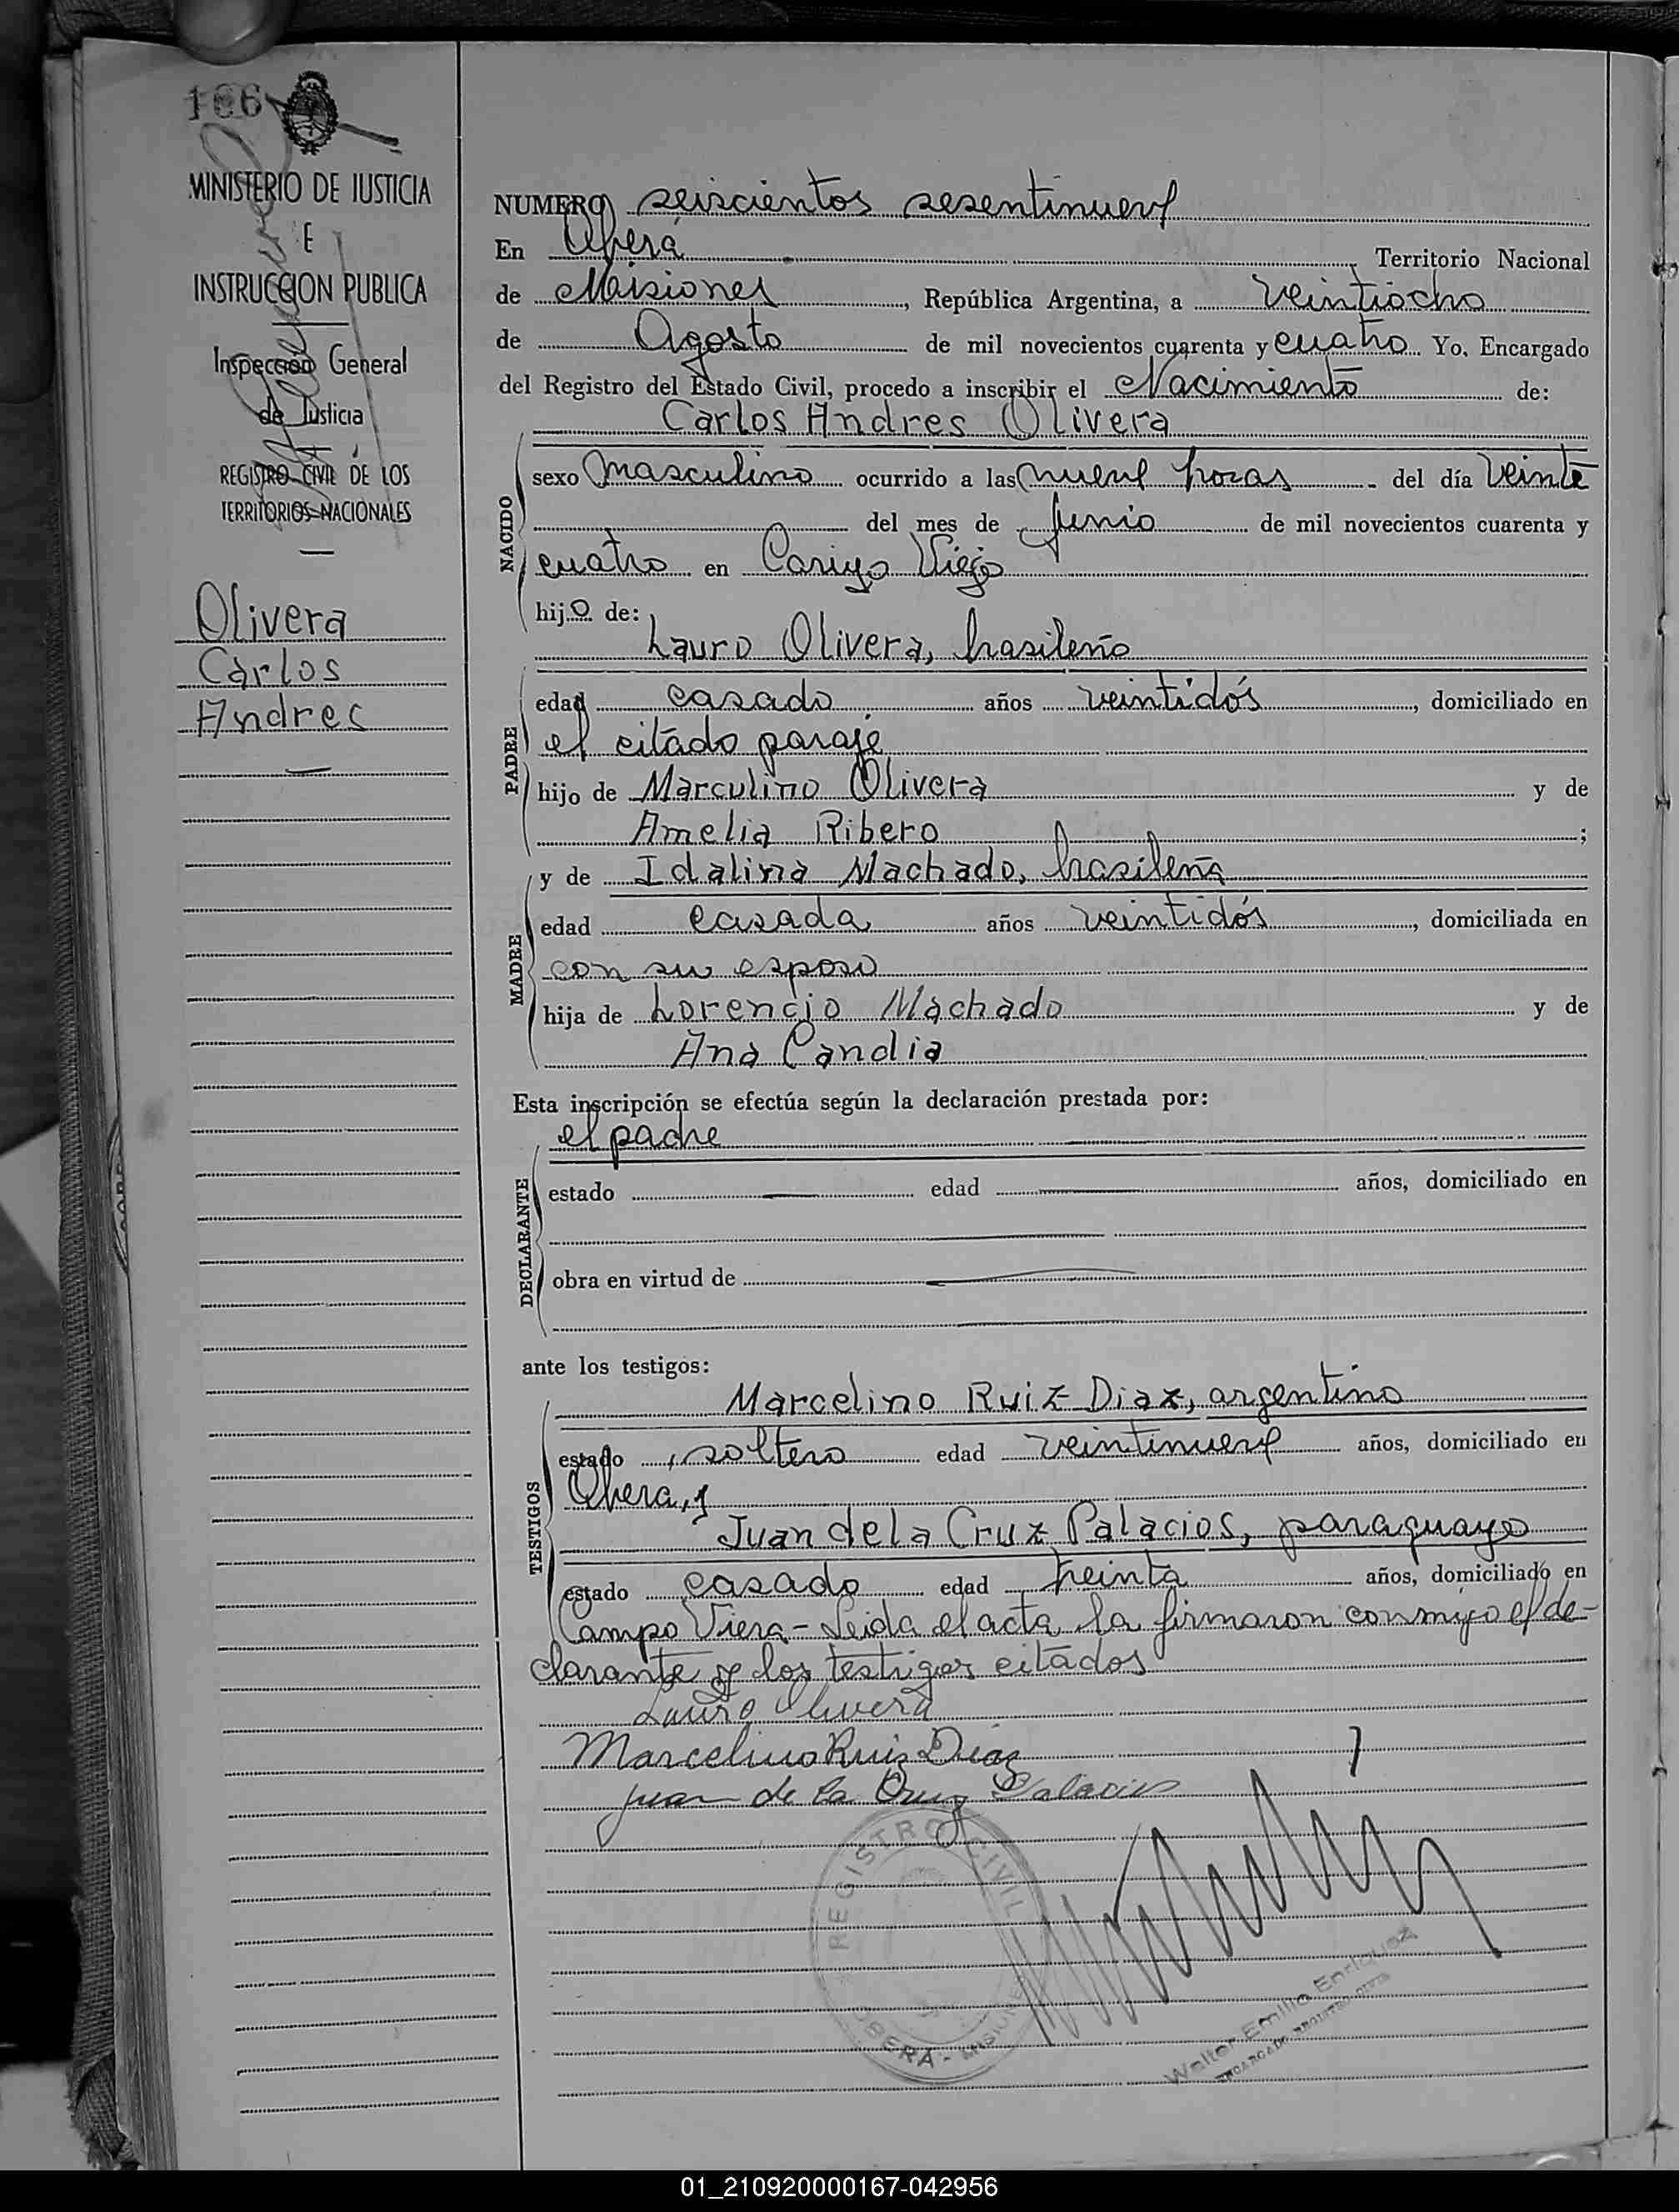 166
MINISTERIO DE JUSTICIA
E
INSTRUCCION PUBLICA
Inspección General
de Justicia
REGISTRO CIVIL DE LOS
TERRITORIOS NACIONALES
Olivera
Carlos
Andres
NUMERO seiscientos sesentinueve
En Oberá Territorio Nacional
de Misiones, República Argentina, a veintiocho
de Agosto de mil novecientos cuarenta y cuatro Yo, Encargado
del Registro del Estado Civil, procedo a inscribir el Nacimiento de:
Carlos Andres Olivera
NACIDO
sexo masculino ocurrido a las nueve horas del día veinte
del mes de Junio de mil novecientos cuarenta y
cuatro en Viejo
hijo de:
Lauro Olivera, brasileño
PADRE
edad casado años veintidós, domiciliado en
el citado paraje
hijo de Marculino Olivera y de
Amelia Ribero;
y de Idalina Machado, brasileña
MADRE
edad casada años veintidós, domiciliada en
con su esposo
hija de Lorencio Machado y de
Ana Candia
Esta inscripción se efectúa según la declaración prestada por:
el padre
DECLARANTE
estado edad años, domiciliado en
obra en virtud de
ante los testigos:
Marcelino Ruiz Diaz, argentino
TESTIGOS
estado soltero edad veintinueve años, domiciliado en
Obera, y
Juan de la Cruz Palacios, paraguayo
estado casado edad treinta años, domiciliado en
Campo Viera - Leida el acta la firmaron conmigo el de-
clarante y los testigos citados
Lauro Olivera
Marcelino Ruiz Diaz
Juan de la Cruz Palacios
REGISTRO CIVIL
OBERA - MISIONES
Walter Emilio Enriquez
ENCARGADO REGISTRO CIVIL
01_210920000167-042956